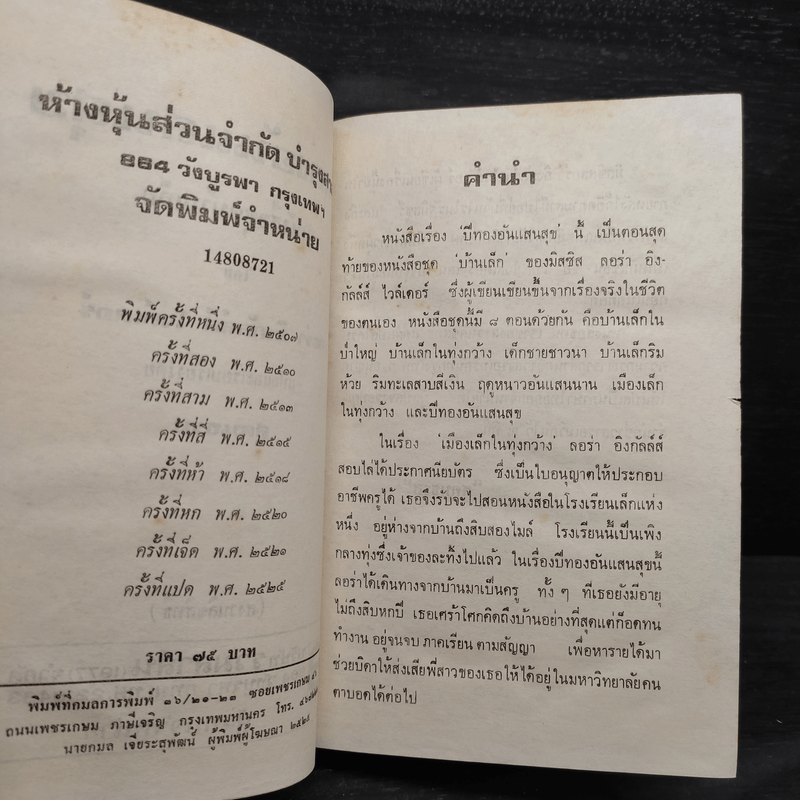 ห้างหุ้นส่วนจำกัด บำรุงสา
๘๘๔ วังบูรพา กรุงเทพฯ
จัดพิมพ์จำหน่าย
14808721
พิมพ์ครั้งที่หนึ่ง พ.ศ. ๒๕๐๗
ครั้งที่สอง พ.ศ. ๒๕๑๐
ครั้งที่สาม พ.ศ. ๒๕๑๓
ครั้งที่สี่ พ.ศ. ๒๕๑๕
ครั้งที่ห้า พ.ศ. ๒๕๑๘
ครั้งที่หก พ.ศ. ๒๕๒๐
ครั้งที่เจ็ด พ.ศ. ๒๕๒๑
ครั้งที่แปด พ.ศ. ๒๕๒๕
ราคา ๗๕ บาท
พิมพ์ที่กมลการพิมพ์ ๓๖/๒๑-๒๓ ซอยเพชรเกษม
ถนนเพชรเกษม ภาษีเจริญ กรุงเทพมหานคร โทร.
นายกมล เจียระสุพัฒน์ ผู้พิมพ์ผู้โฆษณา ๒๕๒๕
คำนำ
หนังสือเรื่อง 'ปีทองอันแสนสุข' นี้ เป็นตอนสุด
ท้ายของหนังสือชุด 'บ้านเล็ก' ของมิสซิส ลอร่า อิง-
กัลล์ส์ ไวล์เดอร์ ซึ่งผู้เขียนเขียนขึ้นจากเรื่องจริงในชีวิต
ของตนเอง หนังสือชุดนี้มี ๘ ตอนด้วยกัน คือบ้านเล็กใน
ป่าใหญ่ บ้านเล็กในทุ่งกว้าง เด็กชายชาวนา บ้านเล็กริม
ห้วย ริมทะเลสาบสีเงิน ฤดูหนาวอันแสนนาน เมืองเล็ก
ในทุ่งกว้าง และปีทองอันแสนสุข
ในเรื่อง 'เมืองเล็กในทุ่งกว้าง' ลอร่า อิงกัลล์ส์
สอบไล่ได้ประกาศนียบัตร ซึ่งเป็นใบอนุญาตให้ประกอบ
อาชีพครูได้ เธอจึงรับจะไปสอนหนังสือในโรงเรียนเล็กแห่ง
หนึ่ง อยู่ห่างจากบ้านถึงสิบสองไมล์ โรงเรียนนี้เป็นเพิง
กลางทุ่งซึ่งเจ้าของละทิ้งไปแล้ว ในเรื่องปีทองอันแสนสุขนี้
ลอร่าได้เดินทางจากบ้านมาเป็นครู ทั้ง ๆ ที่เธอยังมีอายุ
ไม่ถึงสิบหกปี เธอเศร้าโศกคิดถึงบ้านอย่างที่สุดแต่ก็อดทน
ทำงาน อยู่จนจบ ภาคเรียน ตามสัญญา เพื่อหารายได้มา
ช่วยบิดาให้ส่งเสียพี่สาวของเธอ ให้ได้อยู่ในมหาวิทยาลัยคน
ตาบอดได้ต่อไป